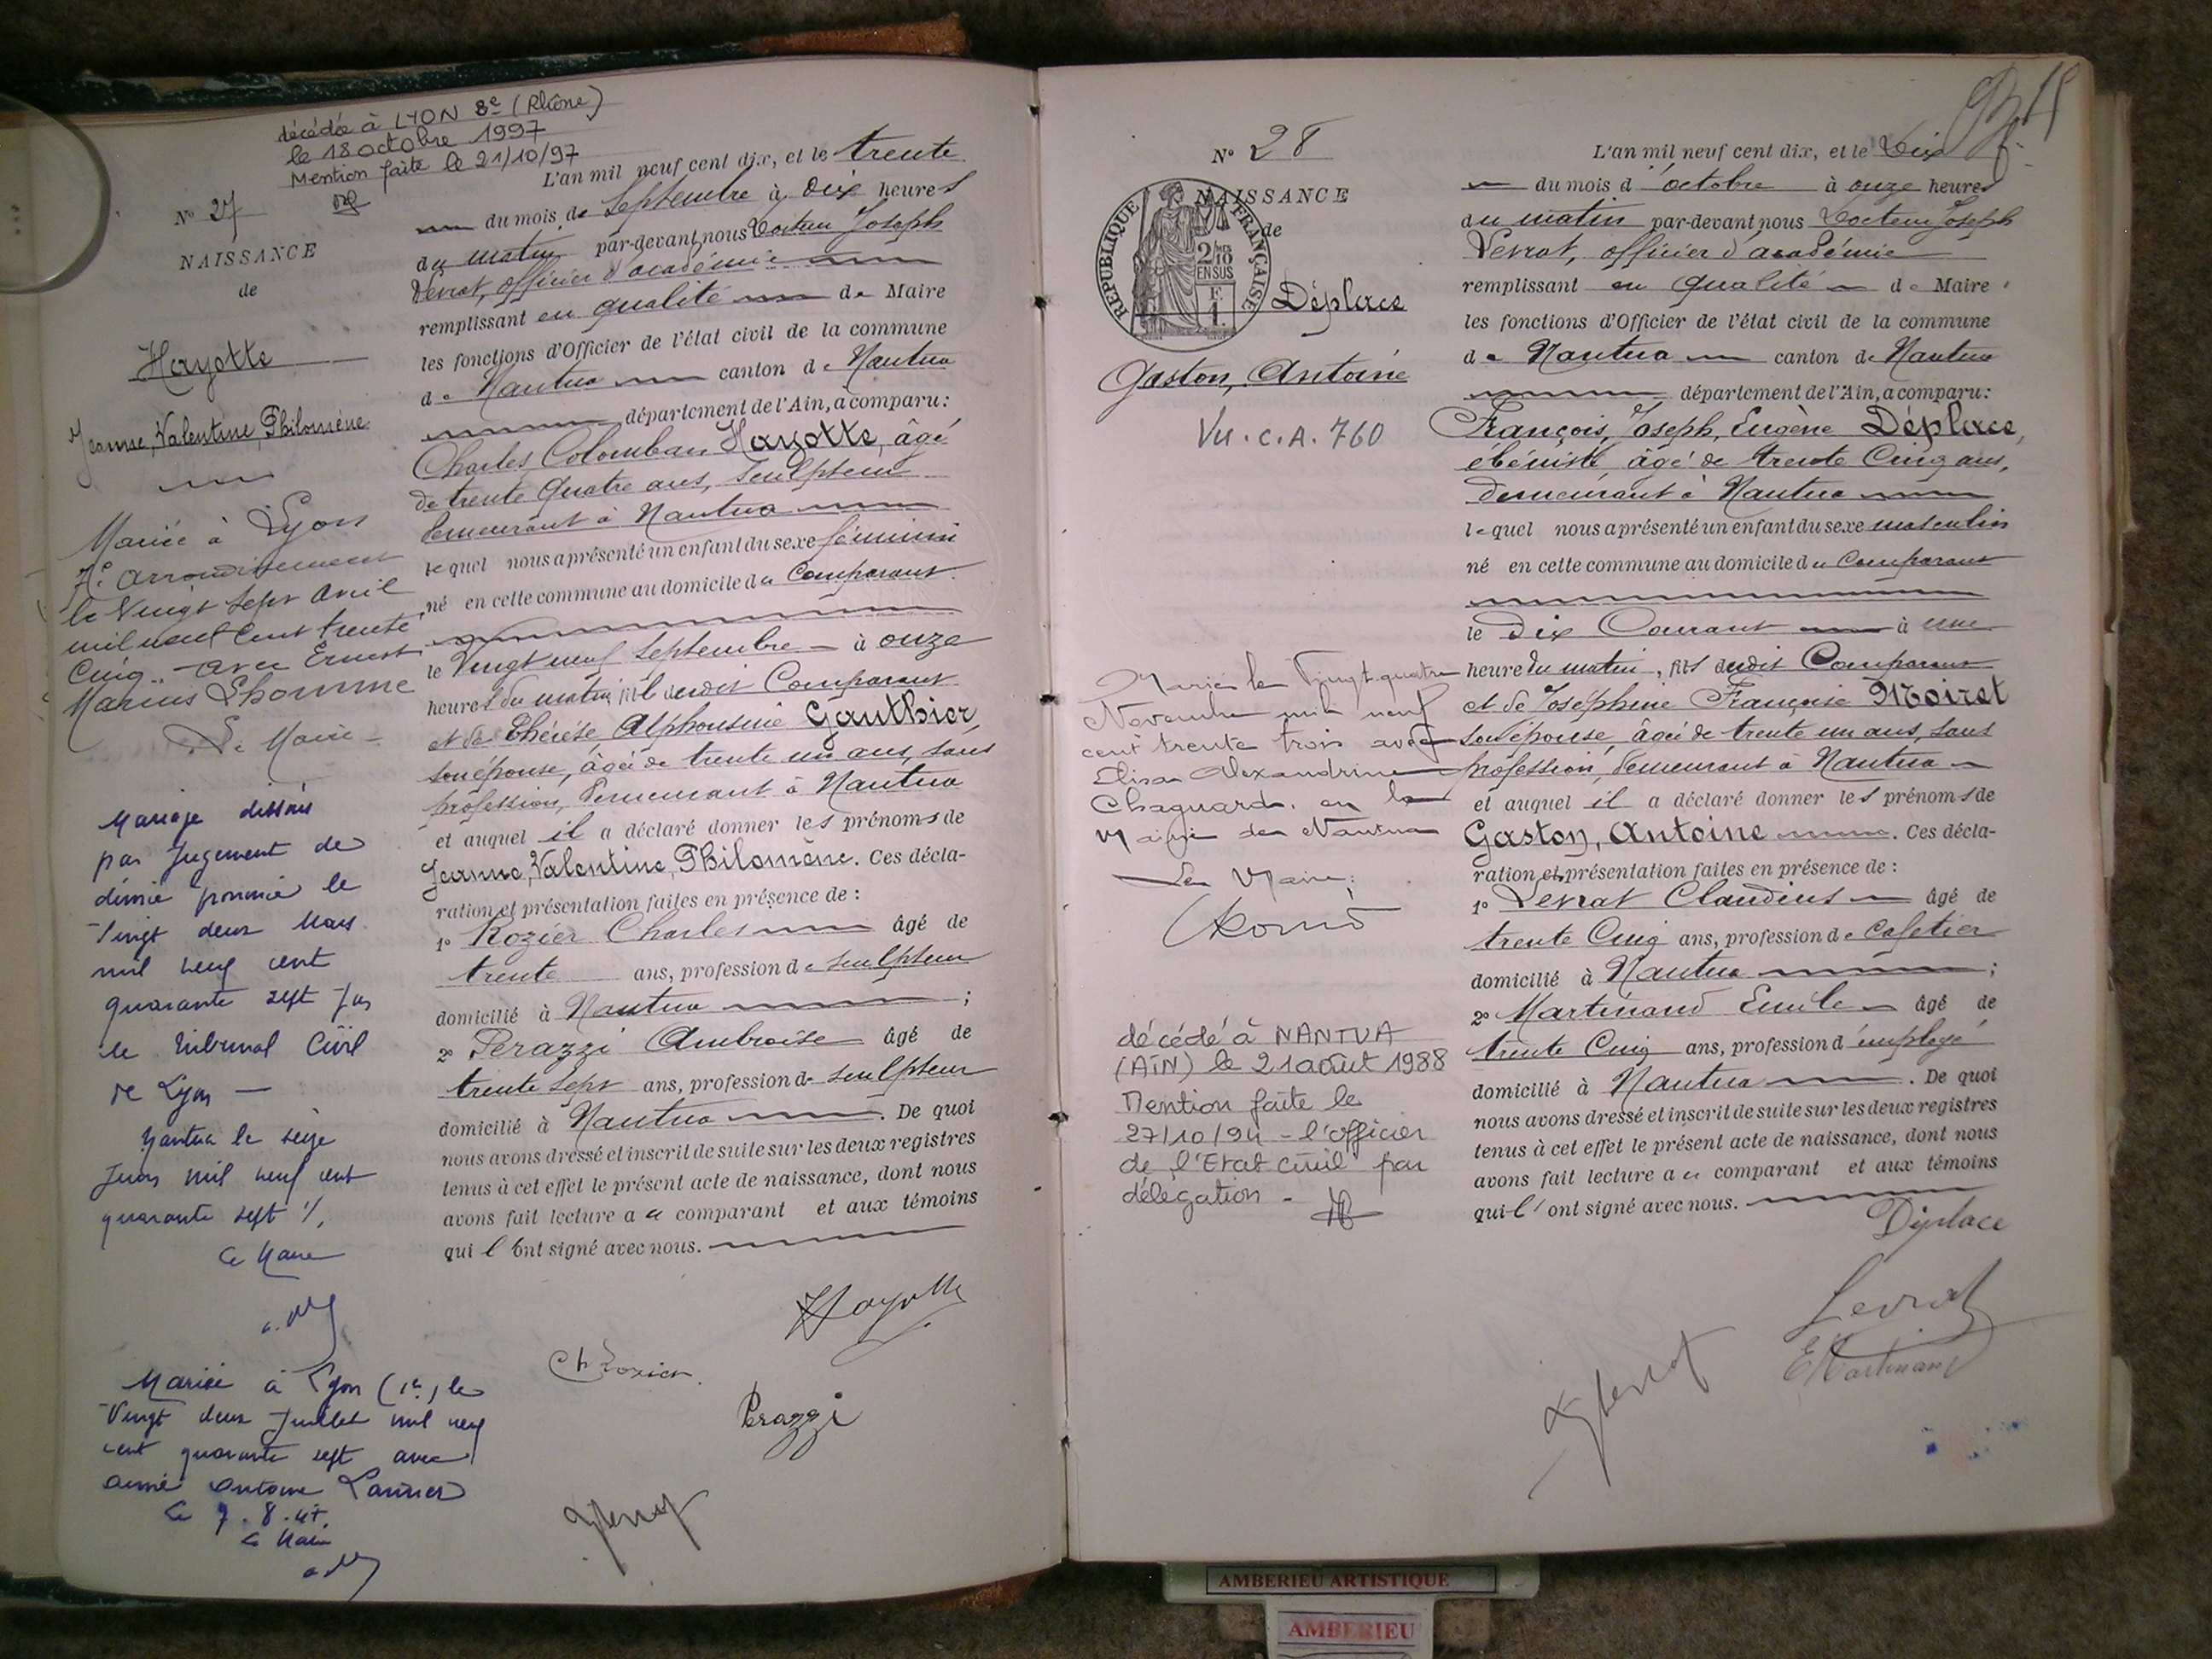 décédée à LYON 8e (Rhône)
le 18 octobre 1997
Mention faite le 21/10/97
N° 27
NAISSANCE
de
Hayotte
Jeanne, Valentine, Philomène
Mariée à Lyon
7e arrondissement
le Vingt sept avril
mil neuf cent trente
Cinq .- avec Ernest
Marius Lhomme
Le Maire
Mariage dissous
par Jugement de
divorce prononcé le
Vingt deux Mars
mil neuf cent
quarante sept par
le Tribunal Civil
de Lyon —
Nantua le seize
Juin mil neuf cent
quarante sept
Le Maire
Mariée à Lyon (1er) le
Vingt deux Juillet mil neuf
cent quarante sept avec
Aimé Antoine
Le 7.8.47.
Le Maire
L'an mil neuf cent dix, et le trente
du mois de Septembre à Dix heures
du matin par-devant nous Docteur Joseph
Levrat, officier d'académie
remplissant en qualité de Maire
les fonctions d'Officier de l'état civil de la commune
de Nantua canton de Nantua
département de l'Ain, a comparu :
Charles Colomban Hayotte, âgé
de trente quatre ans, sculpteur
demeurant à Nantua
lequel nous a présenté un enfant du sexe féminin
né en cette commune au domicile du Comparant
le Vingt neuf Septembre à onze
heures du matin, fille dudit Comparant
et de Thérèse Alphonsine Gauthier,
son épouse, âgée de trente un ans, sans
profession, demeurant à Nantua
et auquel il a déclaré donner les prénoms de
Jeanne, Valentine, Philomène. Ces décla-
ration et présentation faites en présence de :
1° Rozier Charles âgé de
trente ans, profession de sculpteur
domicilié à Nantua ;
2° Perazzi Ambroise âgé de
trente sept ans, profession de sculpteur
domicilié à Nantua . De quoi
nous avons dressé et inscrit de suite sur les deux registres
tenus à cet effet le présent acte de naissance, dont nous
avons fait lecture au comparant et aux témoins
qui l'ont signé avec nous.
Hayotte
Ch Rozier
Perazzi
N° 28
NAISSANCE
de
RÉPUBLIQUE FRANÇAISE
2/10
EN SUS
F.
1.
Déplace
Gaston, Antoine
Vu. C.A. 760
Marié le Vingt-quatre
Novembre mil neuf
cent trente trois avec
Elisa Alexandrine
Chagnard. en la
Mairie de Nantua
Le Maire;
décédé à NANTUA
(AIN) le 21 août 1988
Mention faite le
27/10/94 - l'officier
de l'Etat civil par
délégation -
L'an mil neuf cent dix, et le Dix
du mois d'octobre à onze heures
du matin par-devant nous Docteur Joseph
Levrat, officier d'académie
remplissant en qualité de Maire
les fonctions d'Officier de l'état civil de la commune
de Nantua canton de Nantua
département de l'Ain, a comparu :
François, Joseph, Eugène Déplace,
ebéniste, âgé de trente Cinq ans,
demeurant à Nantua
lequel nous a présenté un enfant du sexe masculin
né en cette commune au domicile du Comparant
le Dix Courant à une
heure du matin, fils dudit Comparant
et de Joséphine Françoise Moiret
son épouse, âgée de trente un ans, sans
profession, demeurant à Nantua
et auquel il a déclaré donner les prénoms de
Gaston, Antoine . Ces décla-
ration et présentation faites en présence de :
1° Levrat Claudius âgé de
trente Cinq ans, profession de Cafetier
domicilié à Nantua ;
2° Martinand Emile âgé de
trente Cinq ans, profession d'employé
domicilié à Nantua . De quoi
nous avons dressé et inscrit de suite sur les deux registres
tenus à cet effet le présent acte de naissance, dont nous
avons fait lecture au comparant et aux témoins
qui l'ont signé avec nous.
Déplace
Levrat
E Martinand
AMBERIEU ARTISTIQUE
AMBERIEU